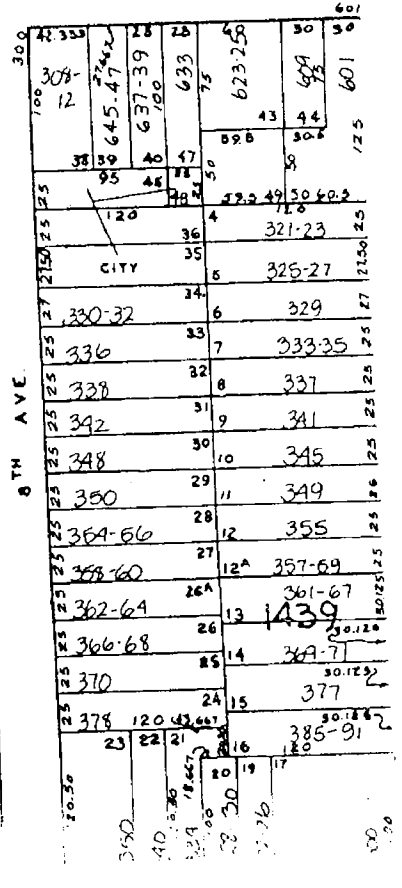 601
300 42.333 28 28 50 50
308-12 27.662 645-47 637-39 633 623-25 609 601
100 100 75 75 125
43 44
38 39 40 47 59.8 50.6
95 46 48 50
25 59.5 49 50 60.5
120 4 120
25 36 321-23 25
27.50 CITY 35 5 325-27 27.50
27 330-32 34 6 329 27
25 336 33 7 333-35 25
25 338 32 8 337 25
25 342 31 9 341 25
8TH AVE.
25 348 30 10 345 25
25 350 29 11 349 26
25 354-56 28 12 355 25
25 358-60 27 12A 357-59 25
25 362-64 26A 13 361-67 30.125
1439
25 366-68 26 14 369-71 30.125
25 370 25 377 30.125
25 378 120 43.667 24 15 385-91
23 22 21 16 120
20 19 17
20.50 18.667 30